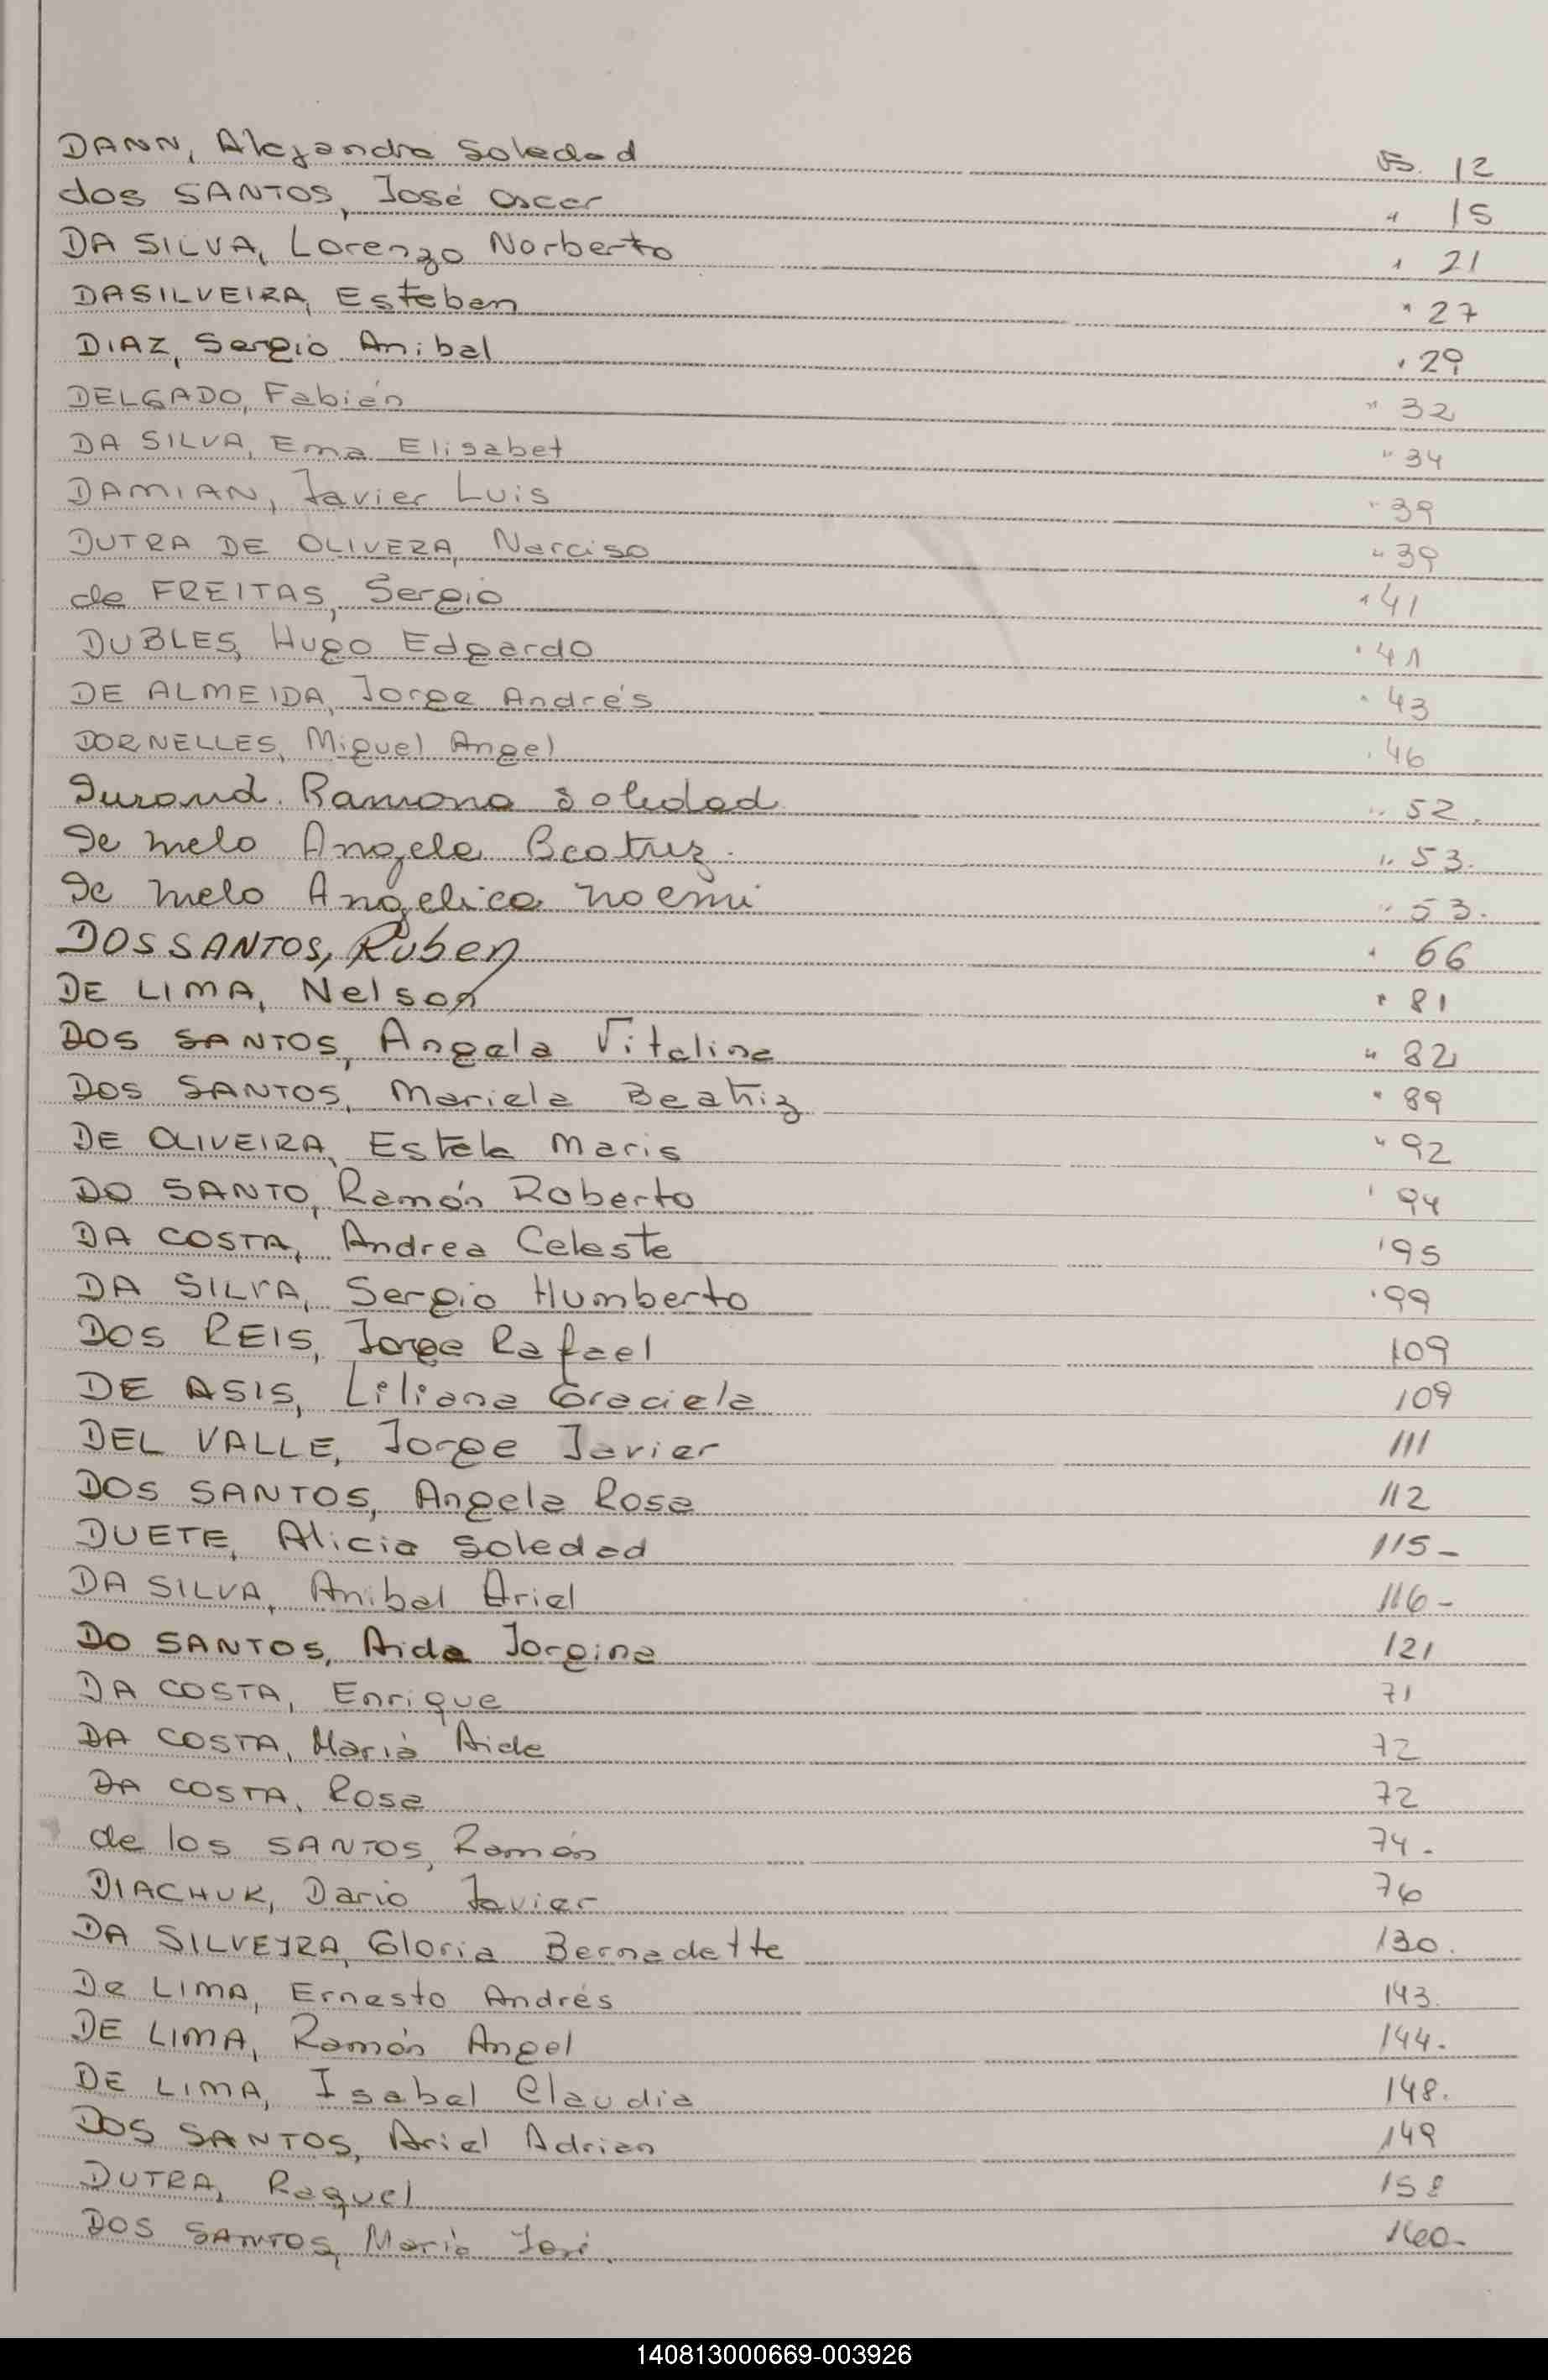 DANN, Alejandra Soledad Fs. 12
dos SANTOS, José Oscar " 15
DA SILVA, Lorenzo Norberto " 21
DASILVEIRA, Esteban " 27
DIAZ, Sergio Anibal " 29
DELGADO, Fabián " 32
DA SILVA, Ema Elisabet " 34
DAMIAN, Javier Luis " 39
DUTRA DE OLIVERA, Narciso " 39
de FREITAS, Sergio " 41
DUBLES, Hugo Edgardo " 41
DE ALMEIDA, Jorge Andrés " 43
DORNELLES, Miguel Angel " 46
Durand. Ramona Soledad " 52.
De Melo Angela Beatriz. " 53.
De Melo Angelica Noemi " 53.
DOS SANTOS, Ruben " 66
DE LIMA, Nelson " 81
DOS SANTOS, Angela Vitalina " 82
DOS SANTOS, Mariela Beatriz " 89
DE OLIVEIRA, Estela Maris " 92
DO SANTO, Ramón Roberto " 94
DA COSTA, Andrea Celeste " 95
DA SILVA, Sergio Humberto " 99
DOS REIS, Jorge Rafael 109
DE ASIS, Liliana Graciela 109
DEL VALLE, Jorge Javier 111
DOS SANTOS, Angela Rosa 112
DUETE, Alicia Soledad 115-
DA SILVA, Anibal Ariel 116-
DO SANTOS, Aida Jorgina 121
DA COSTA, Enrique 71
DA COSTA, Maria Aide 72
DA COSTA, Rosa 72
de los SANTOS, Ramón 74.
DIACHUK, Dario Javier 76
DA SILVEYRA, Gloria Bernadette 130.
De LIMA, Ernesto Andrés 143.
DE LIMA, Ramón Angel 144.
DE LIMA, Isabel Claudia 148.
DOS SANTOS, Ariel Adrian 149
DUTRA, Raquel 158
DOS SANTOS, Maria José. 160-
140813000669-003926